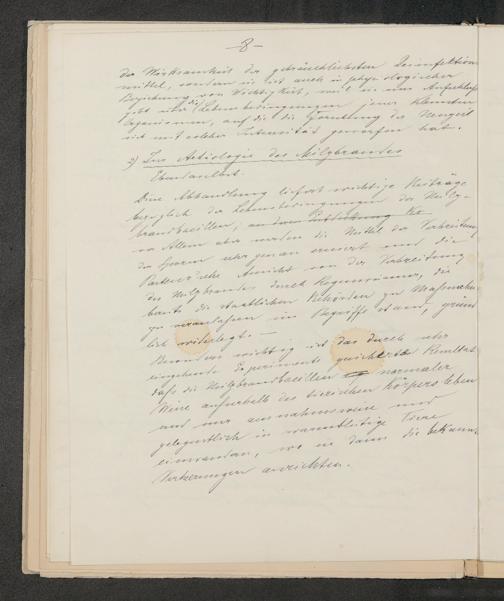 -8-
der Wirksamkeit der gebräuchlichsten Desinfektions
mittel, sondern sie ist auch in physiologischer
Beziehung von Wichtigkeit, weil sie uns Aufschluß
gibt über die Lebensbedingungen jener kleinsten
Organismen, auf die die Forschung der Neuzeit
sich mit solcher Intensität geworfen hat.
2) Zur Aetiologie des Milzbrandes
Eine Abhandlung liefert wichtige Beiträge
bezüglich der Lebensbedingungen der Milz-
brandbacillen,
vor Allem aber werden die Mittel der Verbreitung
der Sporen sehr genau erörtert und die
Pasteur'sche Ansicht von der Verbreitung
des Milzbrandes durch Regenwürmer, die
bereits die staatlichen Behörden zu Maßnahmen
zu veranlassen im Begriffe stand, gründ
lich widerlegt. —
Besonders wichtig ist das durch sehr
eingehende Experimente gesicherte Resultat
daß die Milzbrandbacillen normaler
Weise außerhalb des tierischen Körpers leben
und nur ausnahmsweise und
gelegentlich in warmblütige Tiere
einwandern, wo sie dann die bekannt
anrichten.